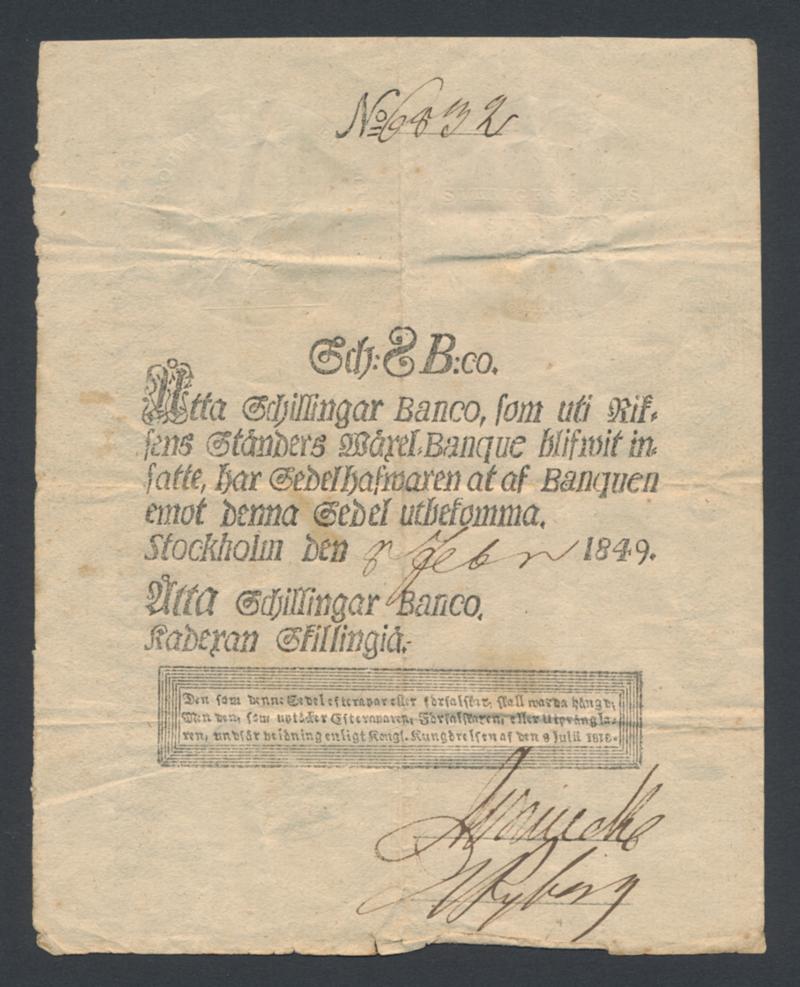 No 6832
Sch: 8 B:co.
Åtta Schillingar Banco, som uti Rik-
sens Ständers Wäxel-Banque blifwit in-
satte, har Sedelhafwaren at af Banquen
emot denna Sedel utbekomma.
Stockholm den 8 Febr 1849.
Åtta Schillingar Banco.
Kadexan Skillingiä.
Den som denne Sedel efterapar eller förfalskar, skall warda hängd;
Men den, som uptäcker Efteraparen, Förfalskaren, eller Utprångla-
ren, undfår belöning enligt Kongl. Kungörelsen af den 8 Julii 1818.
Ryberg